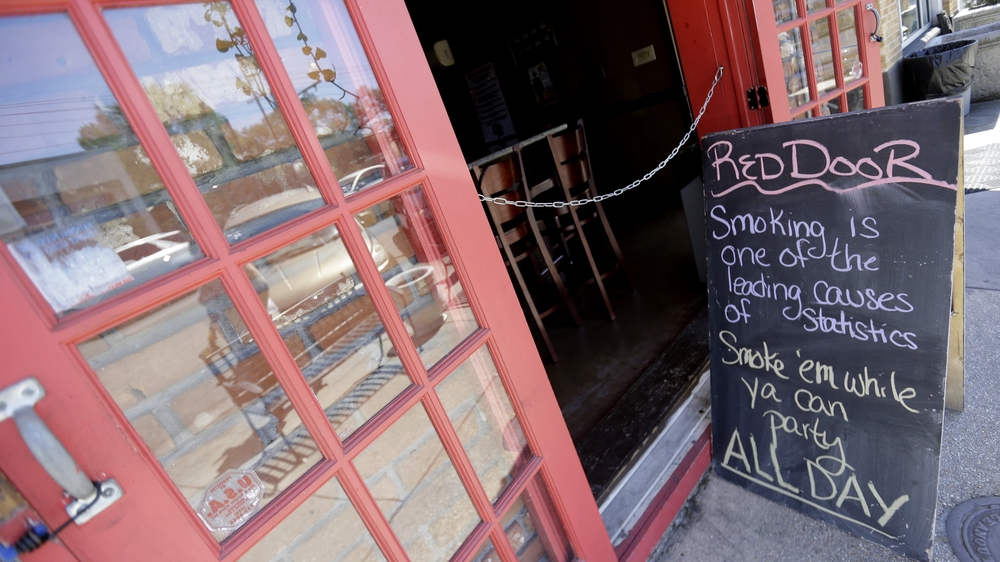 RED DOOR
Smoking is
one of the
leading causes
of statistics
Smoke 'em while
ya can
party
ALL DAY
U.S.A.